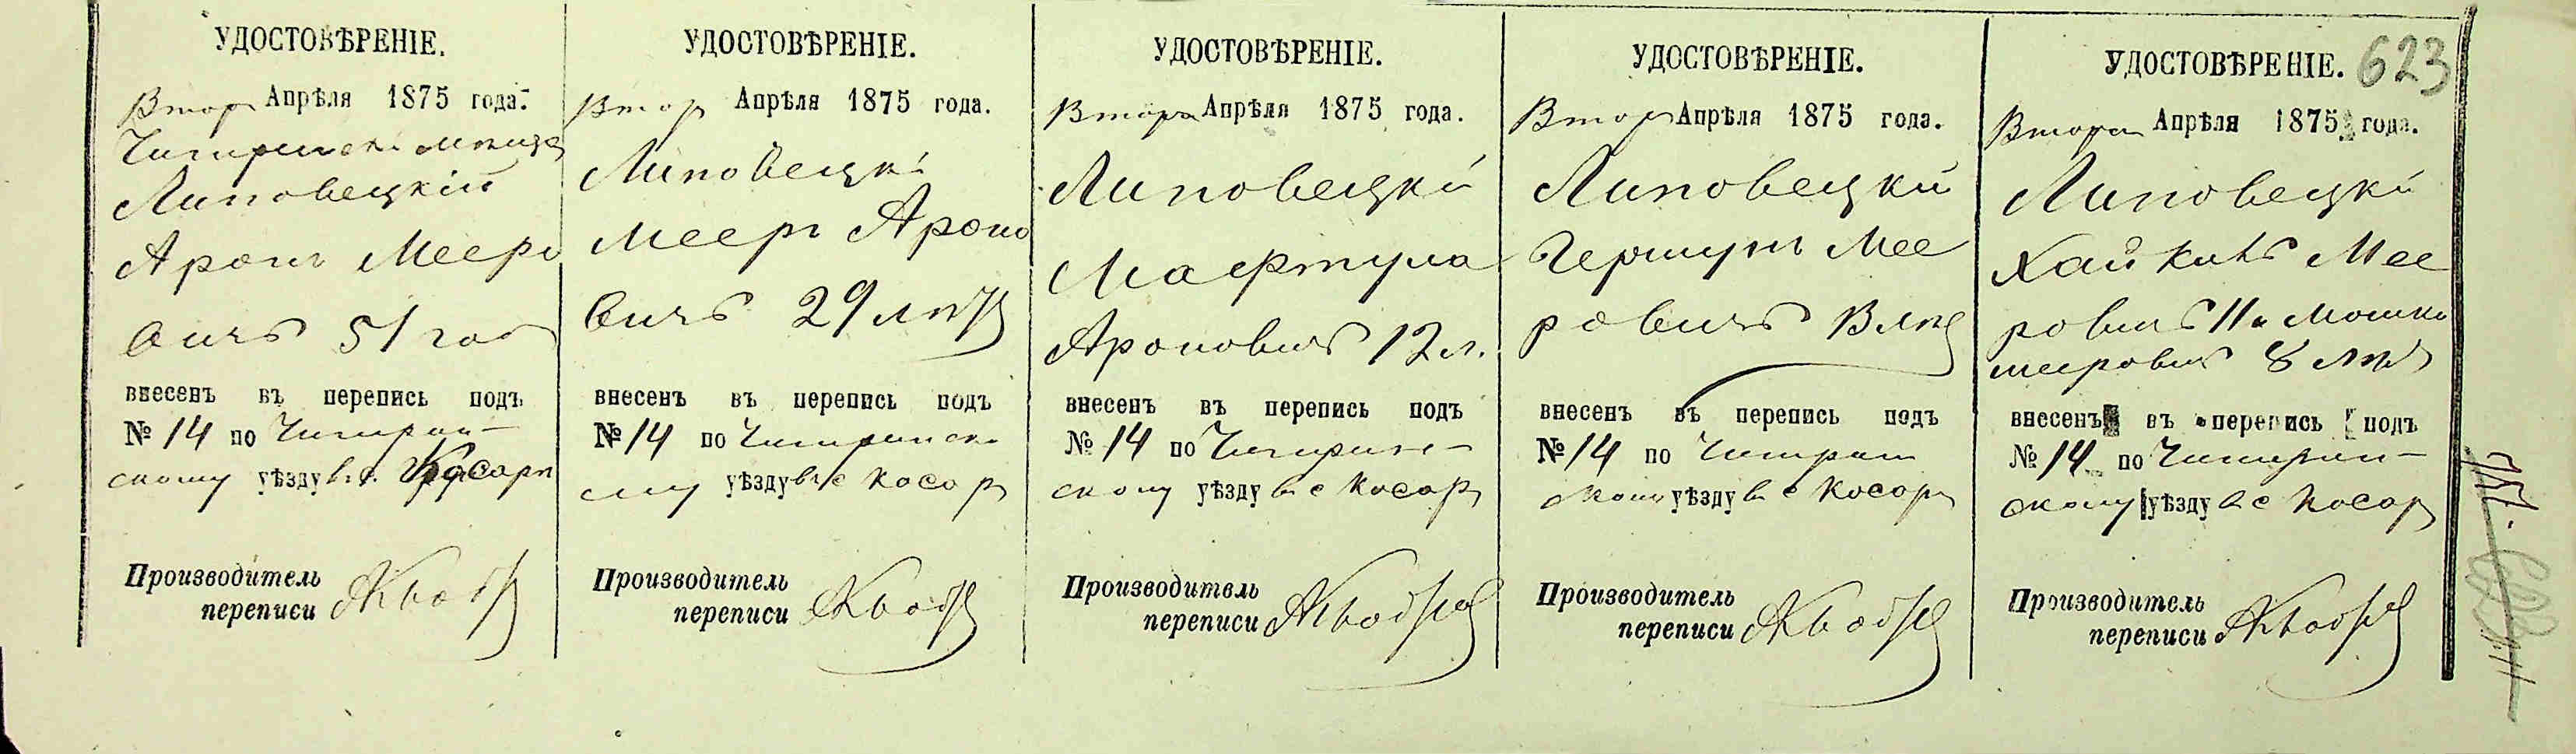 УДОСТОВѢРЕНІЕ.
Втор Апрѣля 1875 года.
Чигиринскі мѣщ
Липовецкій
Аронъ Меер
овичъ 51 год
внесенъ въ перепись подъ
№ 14 по Чигирин-
скому уѣзду в с. Косар
Производитель
переписи
УДОСТОВѢРЕНІЕ.
Втор Апрѣля 1875 года.
Липовецкі
Мееръ Ароно
вичъ 29 лѣтъ
внесенъ въ перепись подъ
№ 14 по Чигиринско
му уѣзду въ с Косар
Производитель
переписи
УДОСТОВѢРЕНІЕ.
Втора Апрѣля 1875 года.
Липовецкій
Мафтула
Ароновичъ 12 л.
внесенъ въ перепись подъ
№ 14 по Чигирин-
скому уѣзду въ с Косар
Производитель
переписи
УДОСТОВѢРЕНІЕ.
Втор Апрѣля 1875 года.
Липовецкий
Гершунъ Мее
ровичъ
внесенъ въ перепись подъ
№ 14 по Чигирин
скому уѣзду въ с Косар
Производитель
переписи
УДОСТОВѢРЕНІЕ. 623
Втора Апрѣля 1875 года.
Липовецкі
Хайкинъ Мее
ровичъ 11 Мошко
меерович 8 лѣтъ
внесенъ въ перепись подъ
№ 14 по Чигирин-
скому уѣзду в с Косар
Производитель
переписи